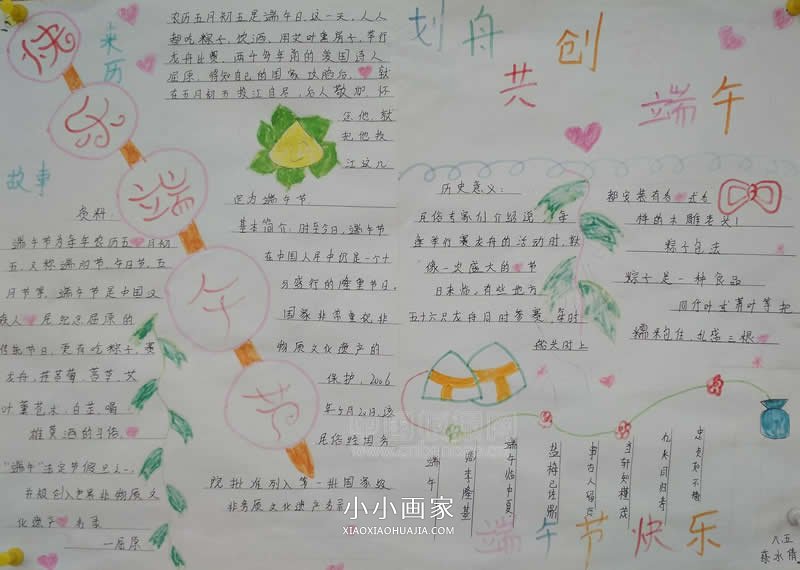 快乐端午节
来历
农历五月初五是端午日,这一天,人人
都吃粽子,饮酒,用艾叶熏房子,举行
龙舟比赛,两千多年前的爱国诗人
屈原,得知自己的国家攻陷后,就
在五月初五投江自尽,后人敬加怀
念他,就
把他投
江这几
故事
资料:
端午节为每年农历五月初
五,又称端阳节,午日节,五
月节等,端午节是中国汉
族人民纪念屈原的
传统节日,更有吃粽子,赛
龙舟,挂菖蒲,蒿草,艾
叶薰苍术,白芷,喝
雄黄酒的习俗
"端午"法定节假日之一,
并被列入世界非物质文
化遗产名录
——屈原
定为端午节
基本简介:时至今日,端午节
在中国人民中仍是一个十
分盛行的隆重节日,
国家非常重视非
物质文化遗产的
保护,2006
年5月20日,该
民俗经国务
院批准列入第一批国家级
非物质文化遗产名录
划舟共创端午
历史意义:
民俗专家们介绍说,每
逢举行赛龙舟的活动时,就
像一次盛大的节
日来临,有些地方
五十六只龙舟同时参赛,
船头时上
都安装有各式各
样的木雕龙头!
粽子包法
粽子是一种食品
用竹叶或苇叶等把
糯米包住,扎成三根
端午
李隆基
端午临中夏
盐梅已佐鼎
事古人留迹
当轩知槿茂
忠贞如不替
端午节快乐
八、五
小小画家
XIAOXIAOHUAJIA.COM